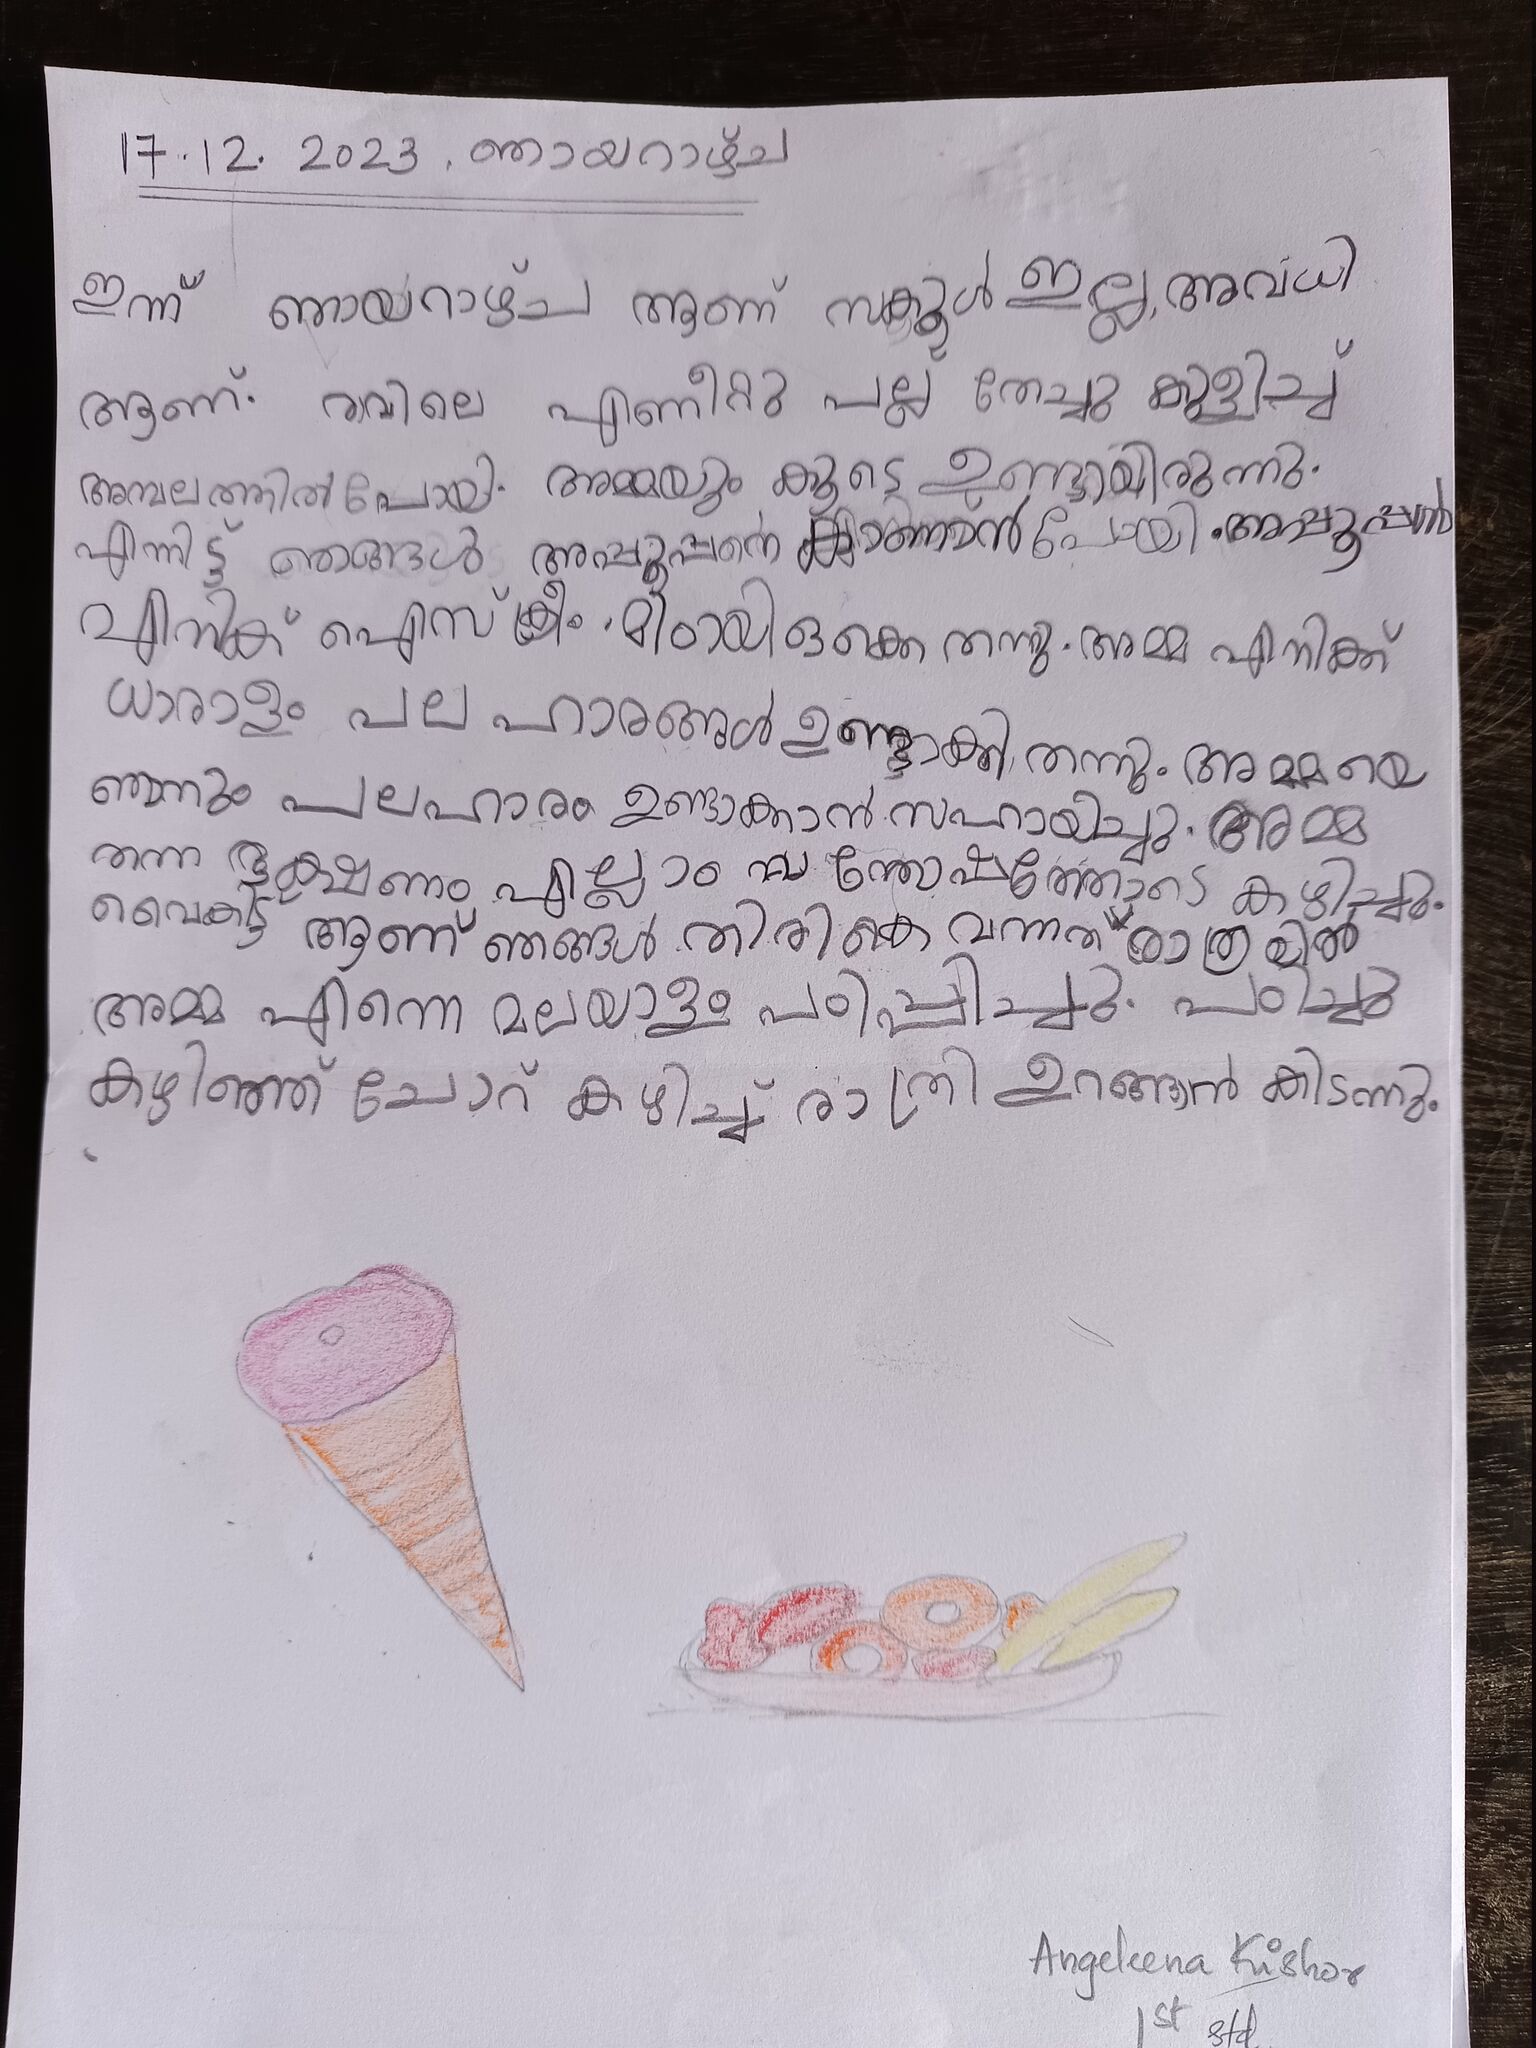 17.12.2023. ഞായറാഴ്ച
ഇന്ന് ഞായറാഴ്ച ആണ് സ്കൂൾ ഇല്ല, അവധി
ആണ്. രാവിലെ എണീറ്റു പല്ല് തേച്ചു കുളിച്ച്
അമ്പലത്തിൽ പോയി. അമ്മയും കൂടെ ഉണ്ടായിരുന്നു.
എന്നിട്ട് ഞങ്ങൾ അപ്പൂപ്പനെ കാണാൻ പോയി. അപ്പൂപ്പൻ
എനിക്ക് ഐസ് ക്രീം. മിഠായി ഒക്കെ തന്നു. അമ്മ എനിക്ക്
ധാരാളം പല ഹാരങ്ങൾ ഉണ്ടാക്കി തന്നു. അമ്മയെ
ഞാനും പലഹാരം ഉണ്ടാക്കാൻ സഹായിച്ചു. അമ്മ
തന്ന ഭക്ഷണം എല്ലാം സന്തോഷത്തോടെ കഴിച്ചു.
വൈകിട്ട് ആണ് ഞങ്ങൾ തിരികെ വന്നത് രാത്രയിൽ
അമ്മ എന്നെ മലയാളം പഠിപ്പിച്ചു. പഠിച്ചു
കഴിഞ്ഞ് ചോറ് കഴിച്ച് രാത്രി ഉറങ്ങാൻ കിടന്നു.
Angeleena Kishor
1st std.